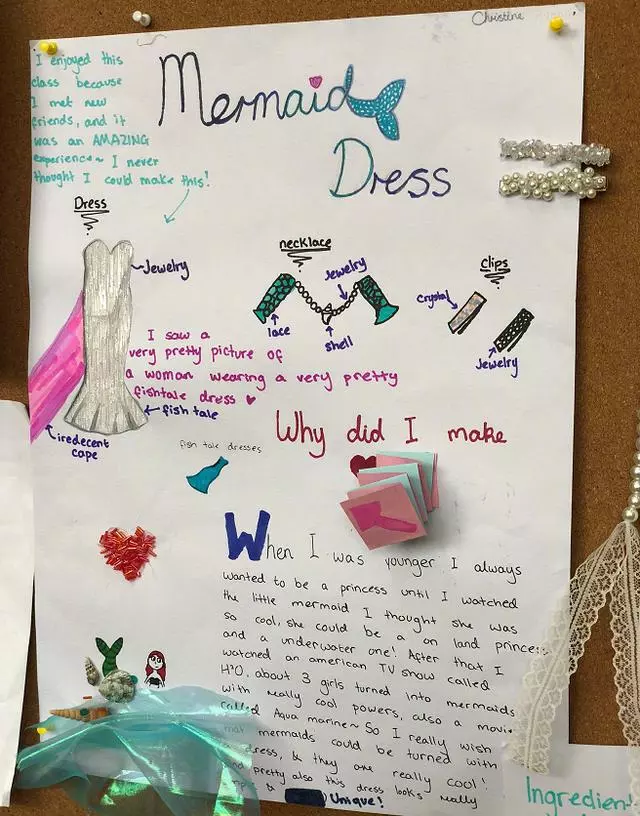 Christine
I enjoyed this
class because
I met new
friends, and it
was an AMAZING
experience~ I never
thought I could make this!
Mermaid
Dress
Dress
Jewelry
iredecent
cape
fish tale
necklace
Jewelry
lace
shell
clips
crystal
Jewelry
I saw a
very pretty picture of
a woman wearing a very pretty
fishtale dress
fish tale dresses
Why did I make
When I was younger I always
wanted to be a princess until I watched
the little mermaid I thought she was
so cool, she could be a on land princess
and a underwater one! After that I
watched an american TV show called
H2O, about 3 girls turned into mermaids
with really cool powers, also a movie
called Aqua marine~ So I really wish
that mermaids could be turned with
a dress, & they are really cool!
and pretty also this dress looks really
& Unique!
Ingredient